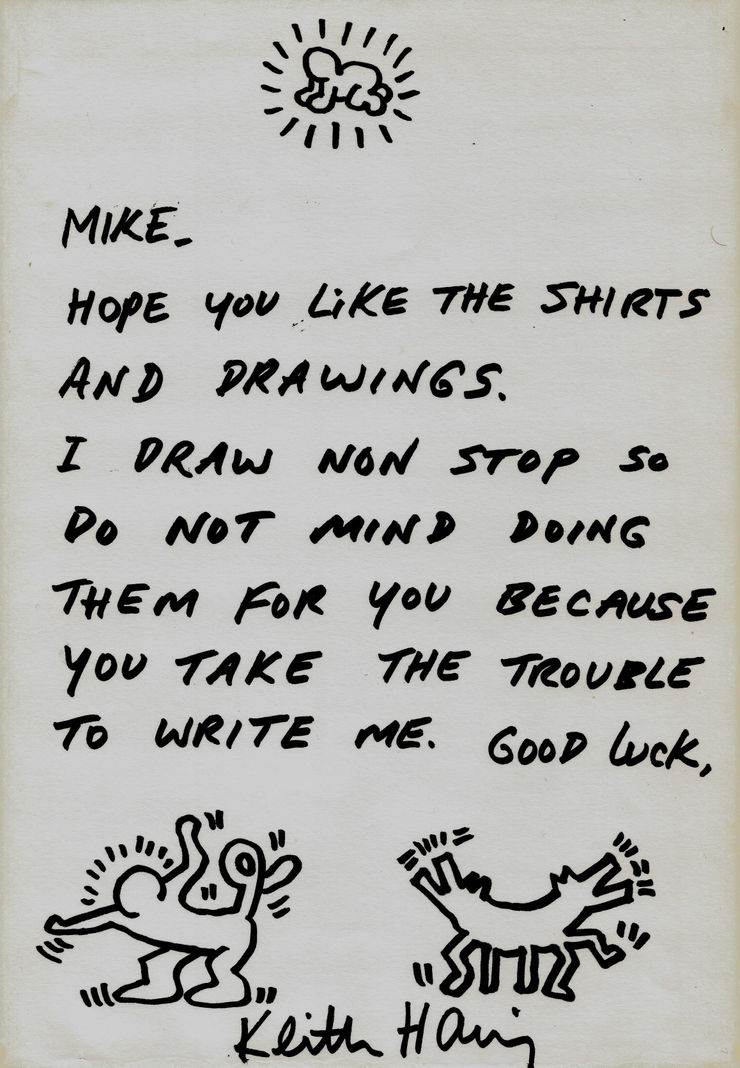 MIKE-
HOPE YOU LiKE THE SHIRTS
AND DRAWINGS.
I DRAW NON STOP SO
DO NOT MIND DOING
THEM FOR YOU BECAUSE
YOU TAKE THE TROUBLE
TO WRITE ME. GOOD LUCK,
Keith Haring